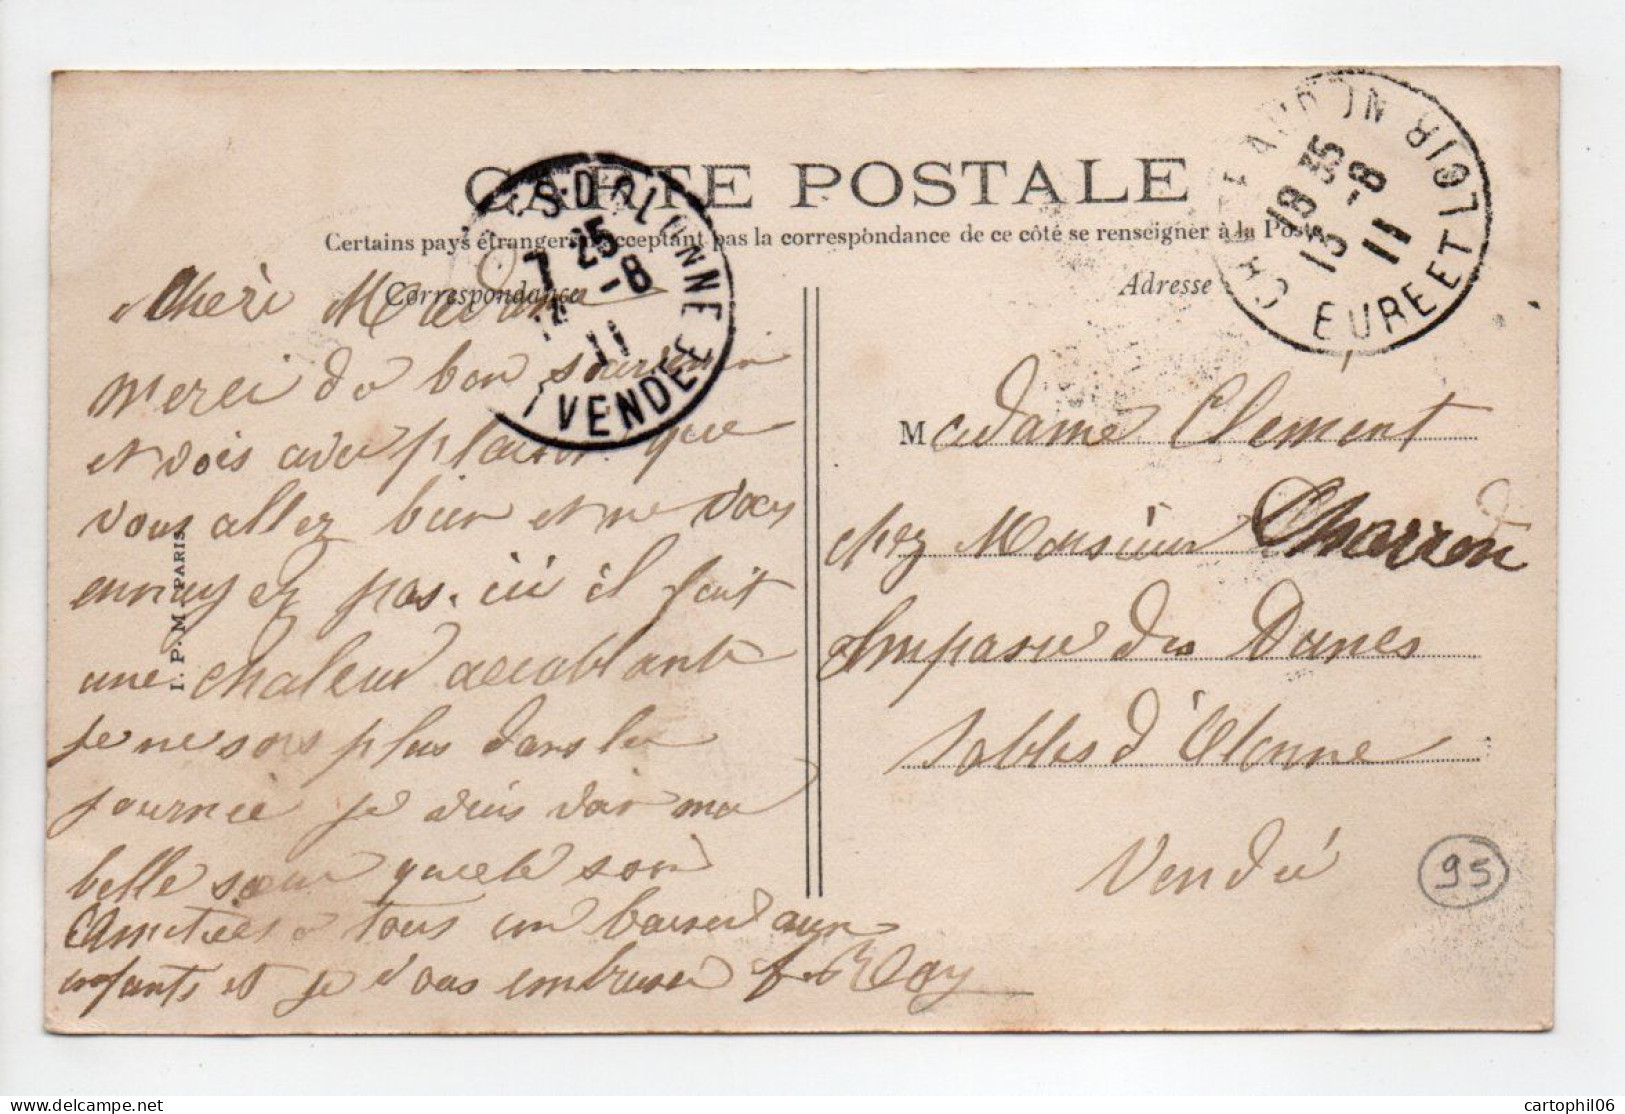 CARTE POSTALE
Certains pays étrangers n'acceptant pas la correspondance de ce côté se renseigner à la Poste
Correspondance
Adresse
Cheri Madam
merci do bon souvenir
et vois avec plaisir que
vous allez bien et ne vous
ennuyez pas. ici il fait
une chaleur accablante
je ne sors plus dans la
journée je vais voir ma
belle sœur quelle soir
Amitiees a tous un baiser aux
enfants et je vous embrasse f. Blay
I. P. M. PARIS
Madame Clement
chez Monsieur Charron
Impasse des Dames
Sables d'Olonne
Vendé
95
S-D'OLONNE
7 25
14 -8
11
VENDEE
CHATEAUDUN
18 35
13 -8
11
EURE ET LOIR
cartophil06